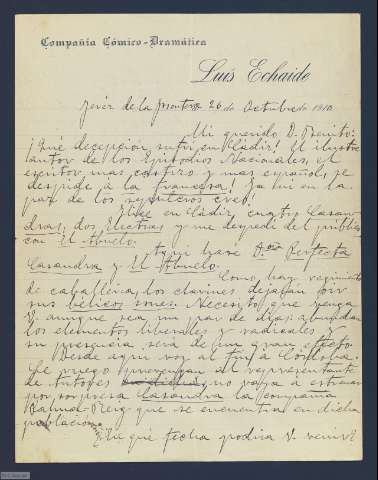 Compañia Cómico-Dramática
Luis Echaide
Jerez de la Frontera 26 de Octubre de 1910
Mi querido D. Benito:
¡Qué decepción sufrí en Cádiz! El ilustre
autor de los Episodios Nacionales, el
escritor mas castizo y mas español, se
despide á la francesa! Ya ni en la
paz de los sepulcros creo!
Hice en Cádiz, cuatro Casan-
dras, dos Electras y me despedí del público
con El Abuelo.
Aqui haré D.ª Perfecta
Casandra y El Abuelo.
Como hay regimiento
de caballería, los clarines dejaran oir
sus bélicos sones. Necesito que venga
V. aunque sea un par de dias; abundan
los elementos liberales y radicales y
su presencia será de un gran efecto.
Desde aqui voy al tnfo Córdoba.
Le ruego prevengan al representante
de Autores no vaya á estrenar
por sorpresa Casandra la compañia
que se encuentra en dicha
poblacion
En qué fecha podria V. venir?